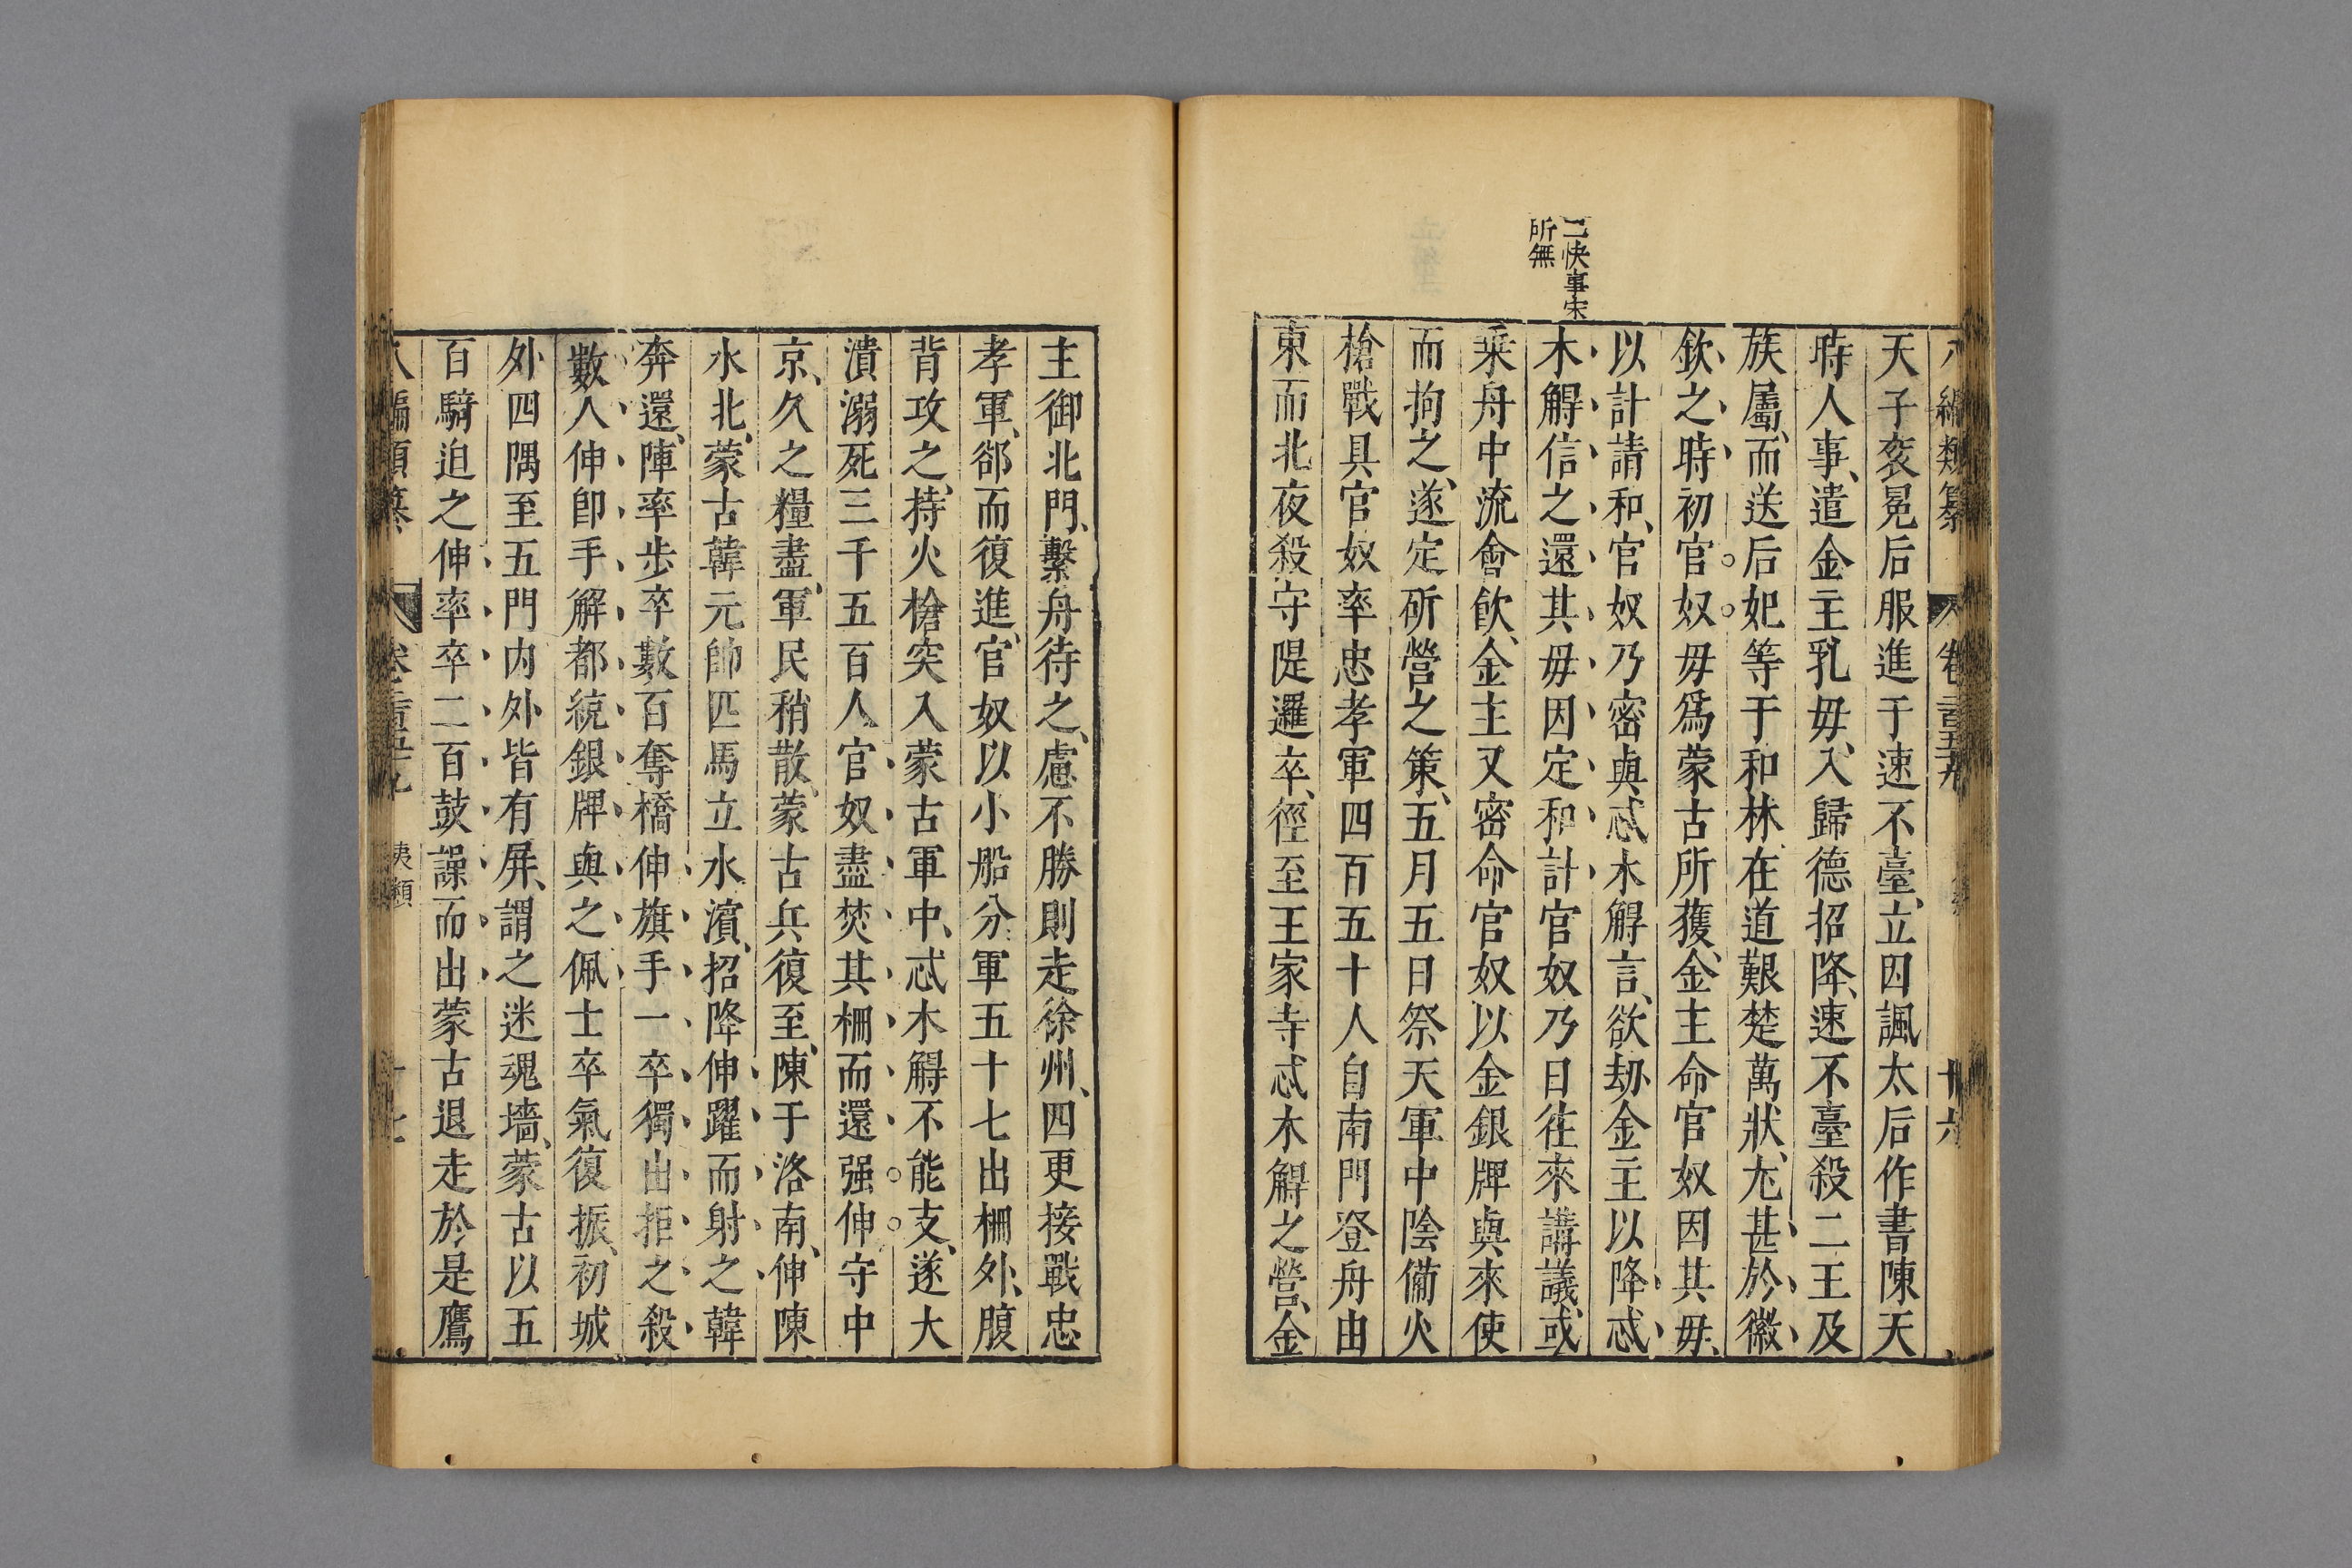 二快事宋
所無
八編類纂 卷二百五十九 十六
天子衮冕后服進于速不臺立因諷太后作書陳天
時人事遣金主乳毋入歸德招降速不臺殺二王及
族屬而送后妃等于和林在道艱楚萬狀尤甚於徽
欽之時初官奴毋爲蒙古所獲金主命官奴因其毋
以計請和官奴乃密與忒木䚟言欲劫金主以降忒
木䚟信之還其毋因定和計官奴乃日往來講議或
乗舟中流會飲金主又密命官奴以金銀牌與來使
而拘之遂定斫營之策五月五日祭天軍中陰備火
槍戰具官奴率忠孝軍四百五十人自南門登舟由
東而北夜殺守隄邏卒徑至王家寺忒木䚟之營金
主御北門繫舟待之慮不勝則走徐州四更接戰忠
孝軍郤而復進官奴以小船分軍五十七出柵外腹
背攻之持火槍突入蒙古軍中忒木䚟不能支遂大
潰溺死三千五百人官奴盡焚其柵而還强伸守中
京久之糧盡軍民稍散蒙古兵復至陳于洛南伸陳
水北蒙古韓元帥匹馬立水濵招降伸躍而射之韓
奔還陣率步卒數百奪橋伸旗手一卒獨出拒之殺
數人伸卽手解都統銀牌與之佩士卒氣復振初城
外四隅至五門内外皆有屏謂之迷魂墻蒙古以五
百騎迫之伸率卒二百鼓譟而出蒙古退走於是鷹
八編類纂 卷二百五十九 夷類 十七